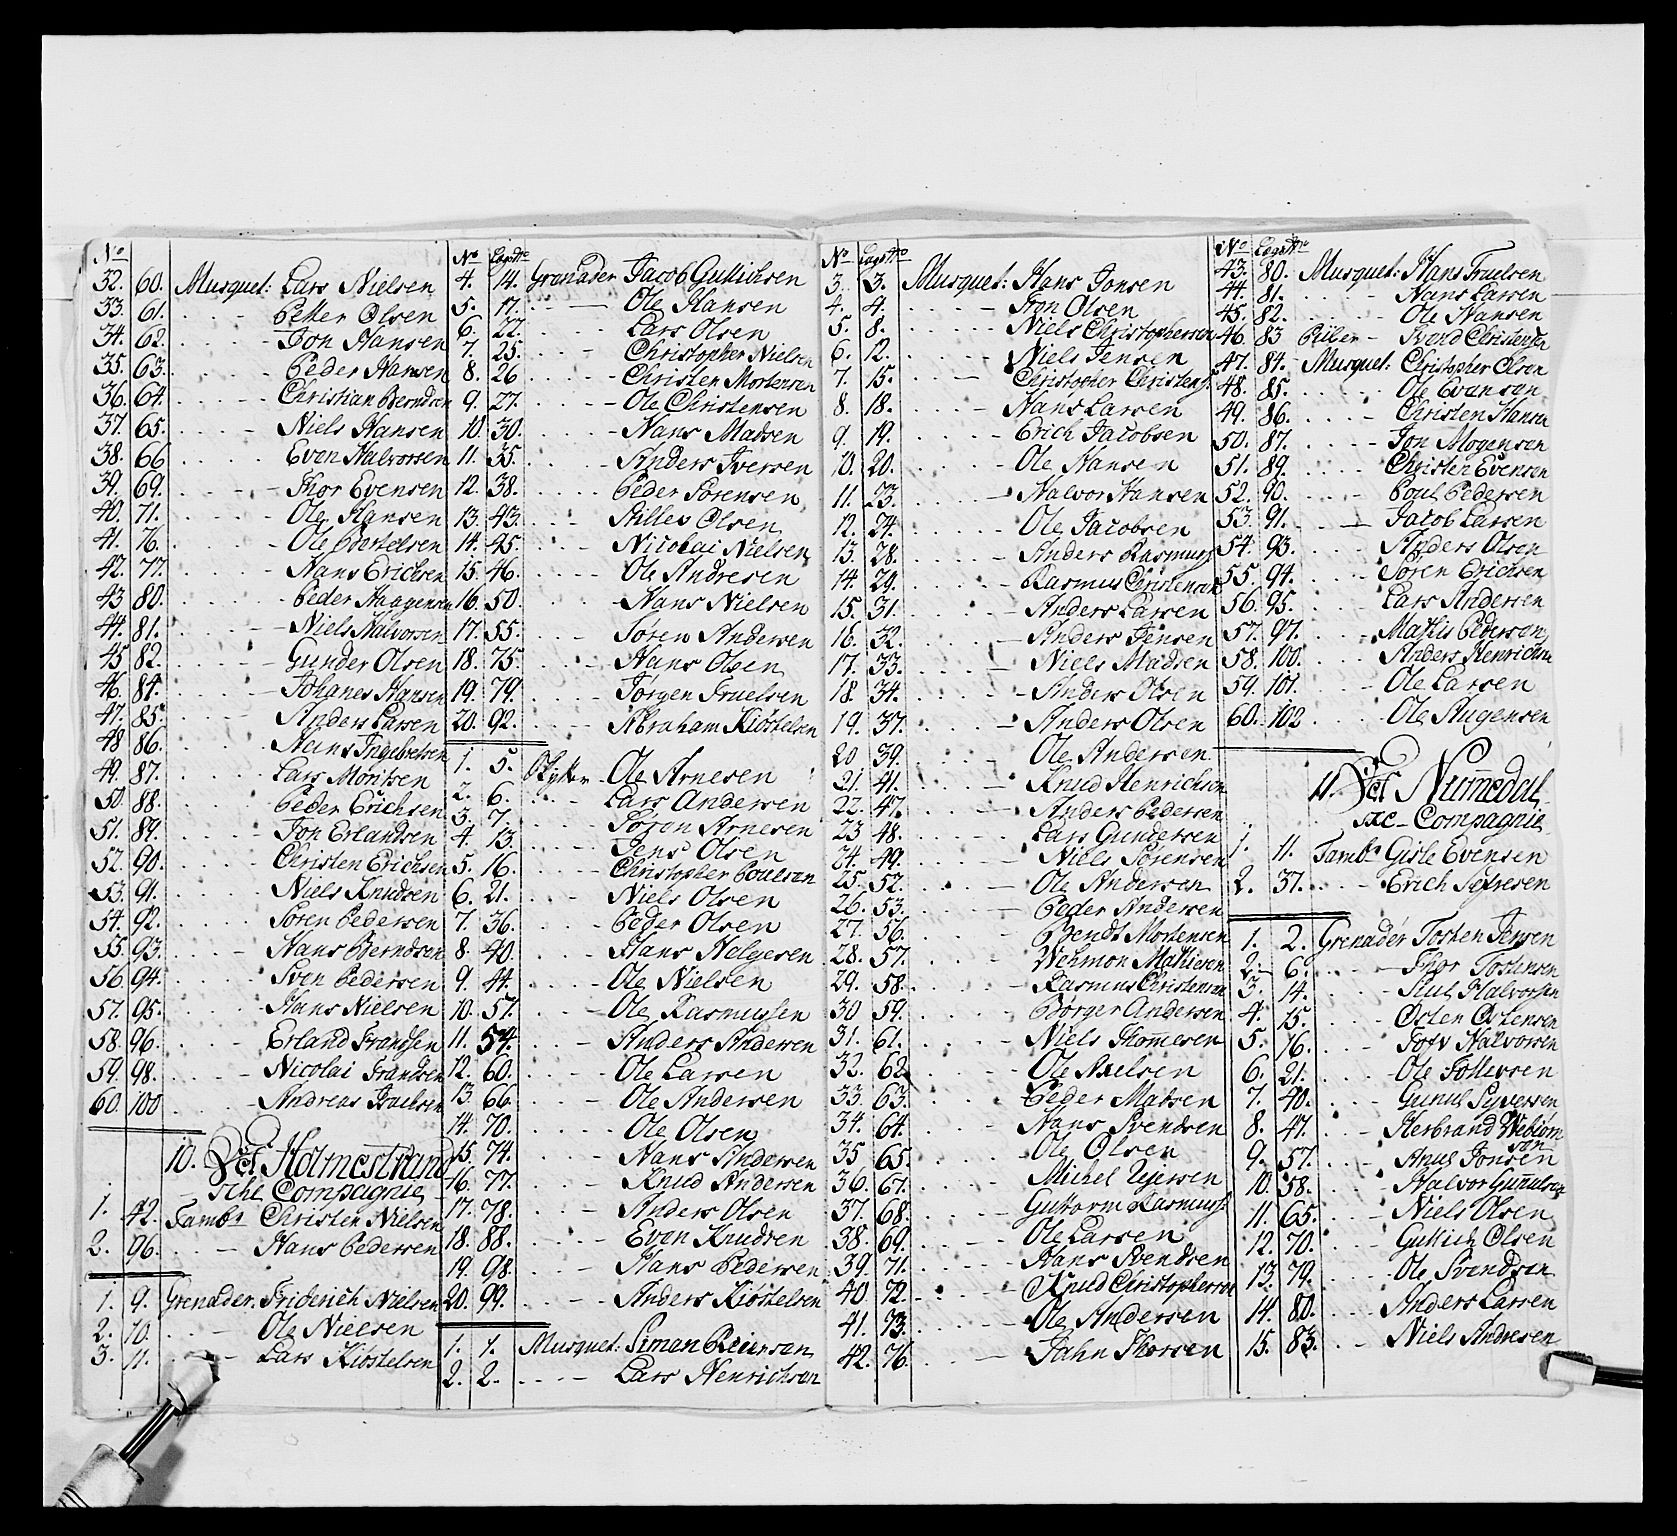 No
32. 60. Musquet: Lars Nielsen
33. 61. Peller Olsen
34. 62. Jon Hansen
35. 63. Peder Hansen
36. 64. Christian Berndsen
37. 65. Niels Hansen
38. 66 Even Halvorsen
39. 69. Thor Evensen
40. 71. Ole Hansen
41. 76. Ole
42. 77. Hans Erichsen
43 80. Peder Haagensen
44. 81. Niels Halvorsen
45 82. Gunder Olsen
46. 84. Johanes Hansen
47. 85. Anders Larsen
48 86. Hans
49. 87. Lars Moritsen
50. 88. Peder Erichsen
51. 89. Jon Erlandsen
52. 90. Christen Erichsen
53. 91. Niels Knudsen
54. 92. Soren Pedersen
55. 93. Hans Berndsen
56. 94. Sven Pedersen
57. 95. Hans Nielsen
58. 96. Erland Frandsen
59. 98. Nicolai Frandsen
60. 100 Andreas Truelsen
10. Det Holmestrand
sche Compagnie
1. 42. Tambr Christen Nielsen
2. 96. Hans Pedersen
1. 9. Grenader. Friderich Nielsen
2. 10. Ole Nielsen
3. 11. Lars Kiöstelsen
No LægsNo
4. 14. Granader Jacob Gullichsen
5. 17. Ole Hansen
6. 22. Lars Olsen
7. 25. Christopher Nielsen
8. 26 Christen Mortensen
9. 27. Ole Christensen
10. 30. Hans Madsen
11. 35. Anders Iversen
12. 38. Peder Sorensen
13. 43. Olsen
14. 45. Nicolai Nielsen
15. 46. Ole Andresen
16. 50. Hans Nielsen
17. 55. Søren Andersen
18. 75. Hans Olsen
19. 79. Jørgen Truelsen
20. 92. Abraham Kiöstelsen
1. 5. Skytter Ole Arnesen
2. 6. Lars Andersen
3. 7. Søren Arnesen
4. 13. Jens Olsen
5. 16. Christopher Poulsen
6. 21. Niels Olsen
7. 36. Peder Olsen
8. 40. Hans Helgesen
9. 44. Ole Nielsen
10. 51. Ole Rasmussen
11. 54. Anders Andersen
12. 60. Ole Larsen
13. 66. Ole Andersen
14. 70. Ole Olsen
15. 74. Hans Andersen
16. 77. Knud Andersen
17. 78. Anders Olsen
18. 88. Even Knudsen
19. 98. Hans Pedersen
20. 99. Anders Kiöstelsen
1. 1. Musquet: Siman Reiersen
2. 2. Lars Henrichsen
No LægsNo
3. 3. Musquet: Hans Jonsen
4. 4. Jon Olsen
5. 8. Niels Christophersen
6. 12. Niels Jensen
7. 15. Christopher Christens:
8. 18. Hans Larsen
9. 19. Erich Jacobsen
10. 20. Ole Hansen
11. 23. Halvor Hansen
12. 24. Ole Jacobsen
13. 28. Anders Rasmuss:
14. 29. Rasmus Christensen
15. 31. Anders Larsen
16. 32. Anders Jensen
17. 33. Niels Madsen
18 34. Anders Olsen
19. 37. Anders Olsen
20 39. Ole Andersen
21. 41. Knud Henrichsen
22. 47. Anders Pedersen
23 48. Lars Gundersen
24. 49. Niels Sörensen
25. 52. Ole Andersen
26. 53. Peder Andersen
27. 56. Bendt Mortensen
28. 57. Mathiesen
29. 58. Rasmus Christensen
30 59. Børger Andersen
31. 61. Niels Thom̅esen
32. 62. Ole Axelsen
33. 63. Peder Matsen
34. 64. Hans Svendsen
35 65. Ole Olsen
36. 67. Michel
37. 68. Guttorm Rasmuss:
38. 69. Ole Larsen
39. 71. Hans Svendsen
40 72. Knud Christophersen
41. 73. Ole Andersen
42. 76. Jahn Thorsen
No LægsNo
43. 80. Musquet: Hans Truelsen
44. 81. Hans Larsen
45. 82. Ole Hansen
46. 83 Piber Svend Christensen
47. 84. Musquet: Christopher Olsen
48. 85. Ole Evensen
49. 86. Christen Hansen
50. 87. Jon Mogensen
51. 89. Christen Evensen
52. 90. Poul Pedersen
53. 91. Jacob Larsen
54. 93. Anders Olsen
55. 94. Søren Erichsen
56. 95. Lars Andersen
57. 97. Mathis Pedersen
58. 100. Anders Henrichsen
59. 101. Ole Larsen
60. 102 Ole Augensen
11. Det Num̅edal
ske Compagnie
1. 11. Tambr Gisle Evensen
2. 37. Erich
1. 2. Grenader Tosten Jensen
2. 6. Thor Tostensen
3. 14. Halvorsen
4. 15. Osten Ostensen
5. 16. Halvorsen
6. 21. Ole Tollefsen
7. 40. Gunul
8. 47. Herbrand Webiorn
sen
9. 57. Anul Jonsen
10. 58. Halvor Gunulsen
11. 65. Niels Olsen
12. 70. Gullich Olsen
13. 79. Ole Svendsen
14. 80. Anders Larsen
15. 83. Niels Andresen